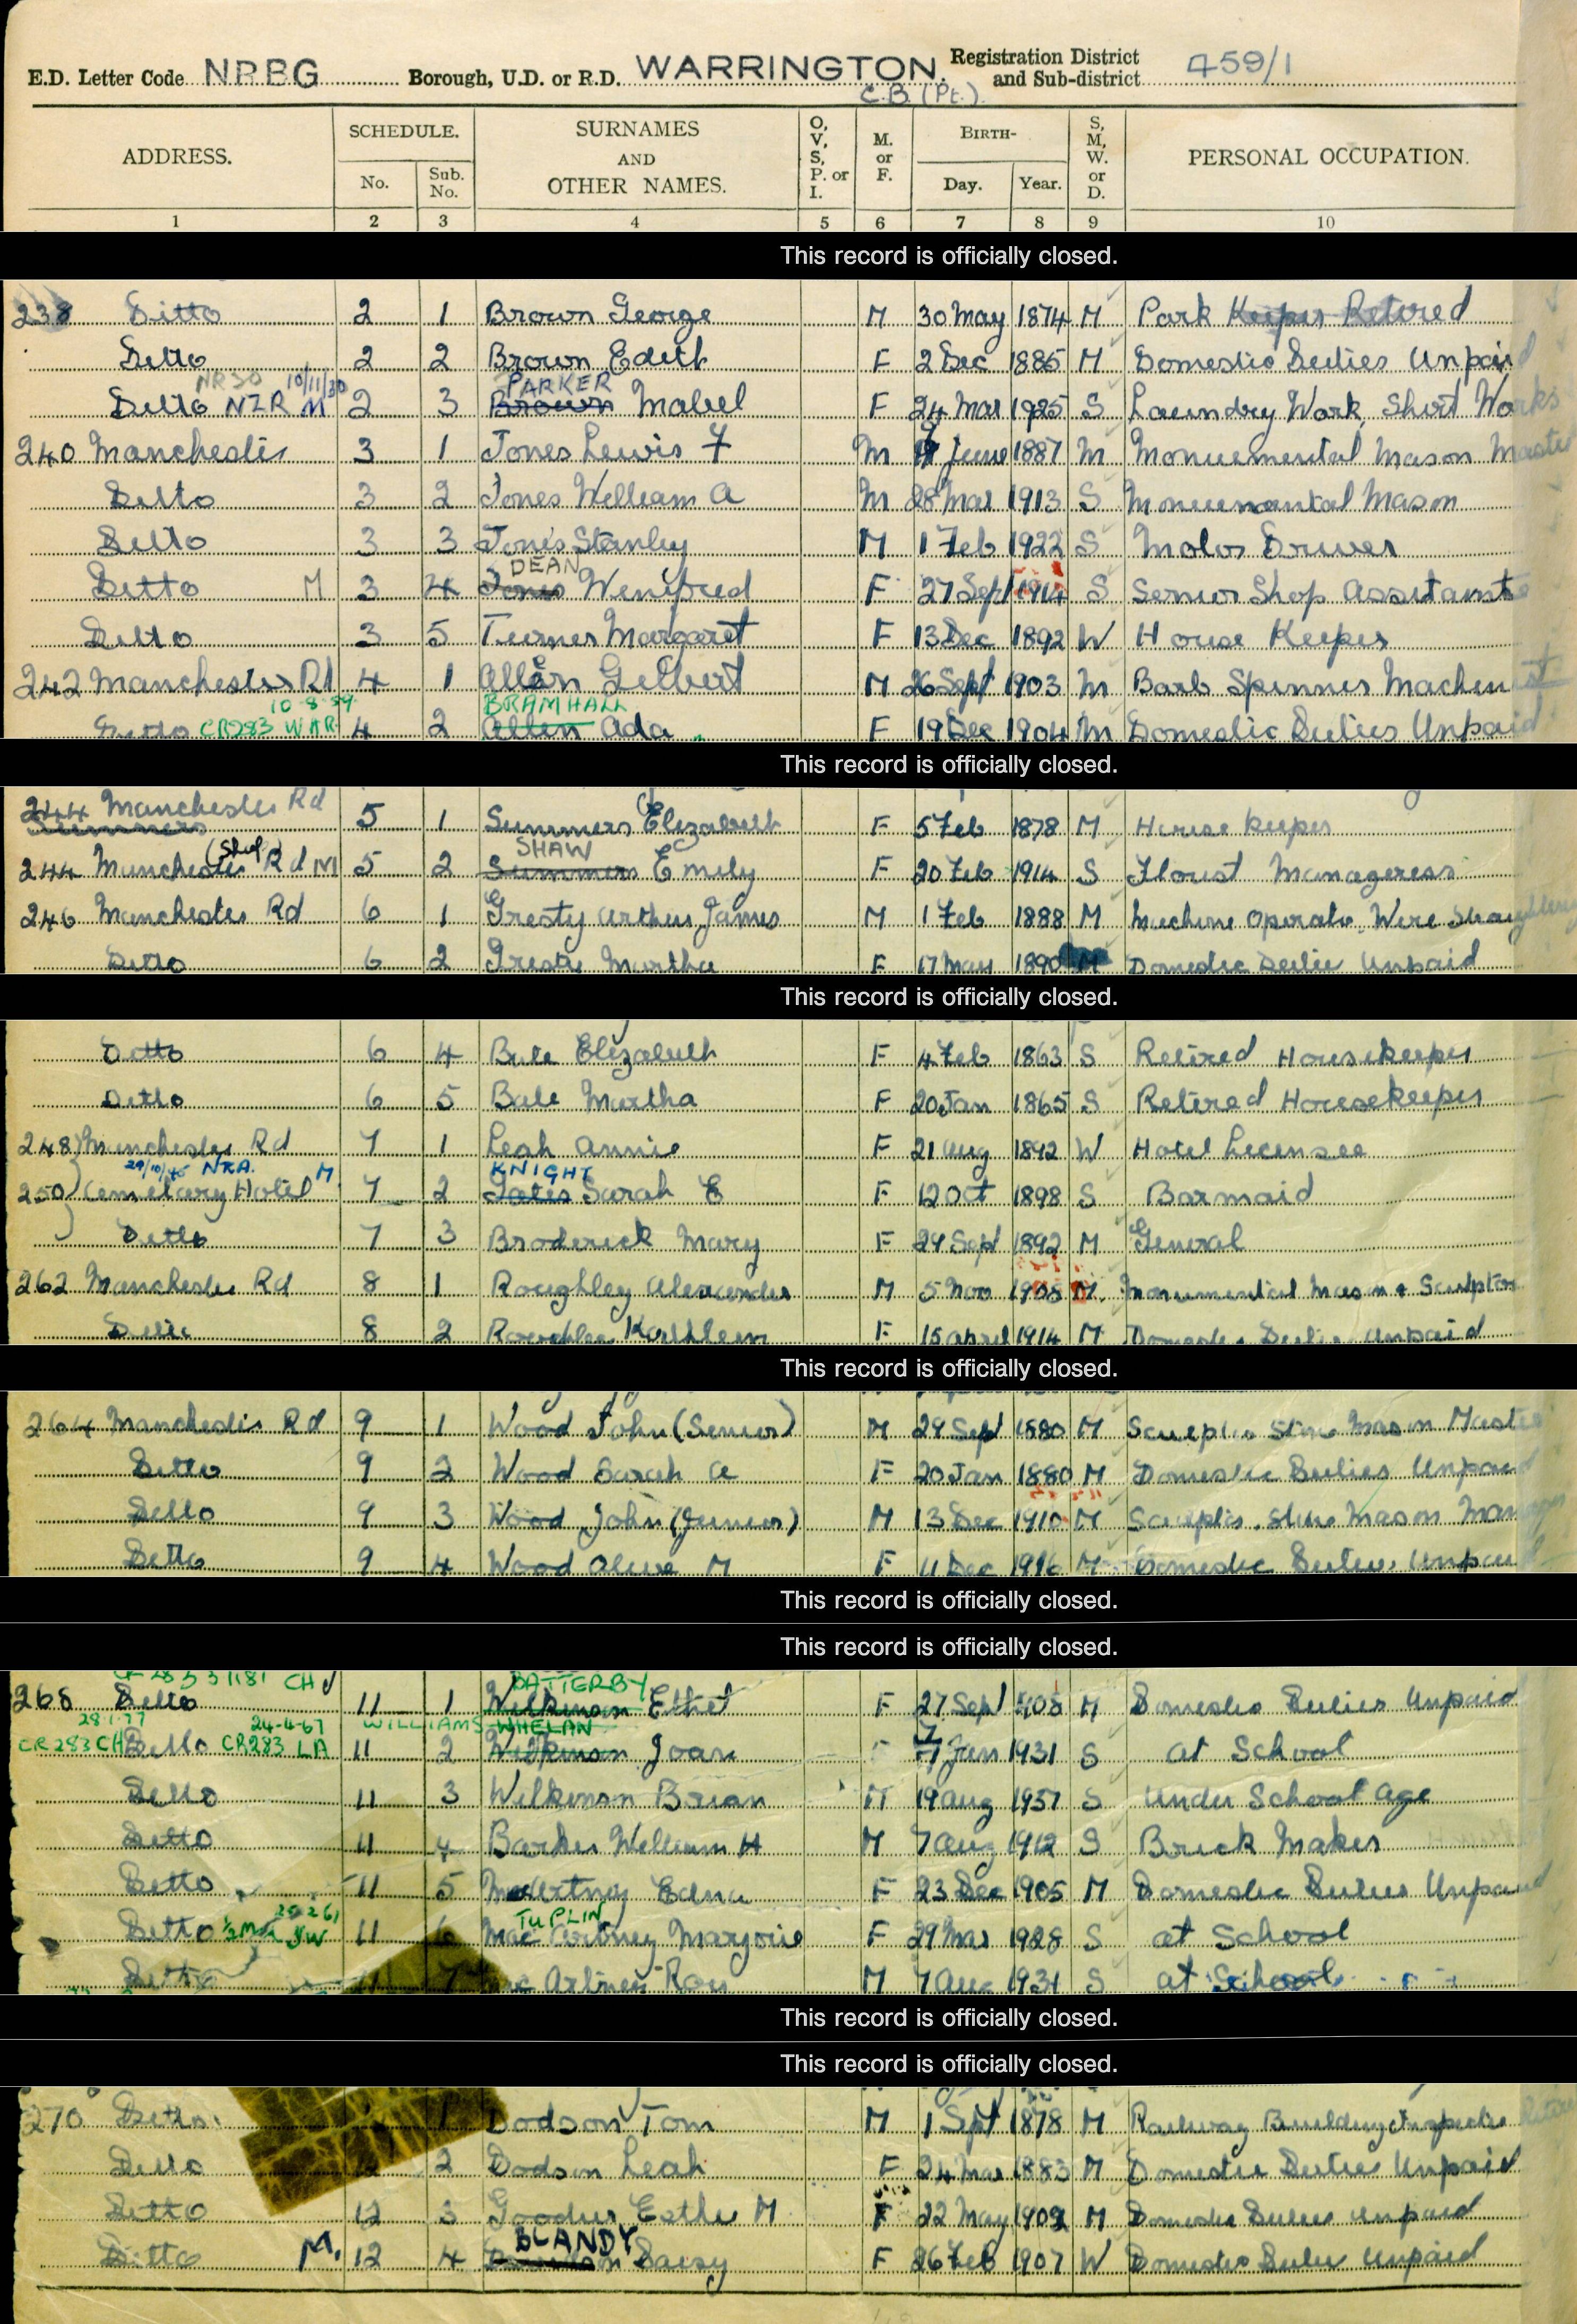 E.D. Letter Code NRBG Borough, U.D. or R.D. WARRINGTON. C.B. (Pt.) Registration District and Sub-district 459/1
ADDRESS. SCHEDULE. No. Sub. No. SURNAMES AND OTHER NAMES. O, V, S, P. or I. M. or F. BIRTH- Day. Year. S, M, W. or D. PERSONAL OCCUPATION.
1 2 3 4 5 6 7 8 9 10
This record is officially closed.
238 Ditto 2 1 Brown George M 30 May 1874 M Park Keeper Retired
Ditto 2 2 Brown Edith F 2 Dec 1885 M Domestic Duties Unpaid
PARKER
Ditto NZR M 2 3 Brown Mabel F 24 Mar 1925 S Laundry Work, Shirt Works
240 Manchester 3 1 Jones Lewis F M June 1887 M Monumental Mason Master
Ditto 3 2 Jones William A M 28 Mar 1913 S Monumental Mason
Ditto 3 3 Jones Stanley M 1 Feb 1922 S Motor Driver
DEAN
Ditto M 3 4 Jones Winifred F 27 Sept 1914 S Senior Shop Assistant
Ditto 3 5 Turner Margaret F 13 Dec 1892 W House Keeper
242 Manchester Rd 4 1 Allen Gilbert M 26 Sept 1903 M Barb Spinner Machinist
10-8-59 BRAMHALL
Ditto CR283 WAR 4 2 Allen Ada F 19 Dec 1904 M Domestic Duties Unpaid
This record is officially closed.
244 Manchester Rd 5 1 Summers Elizabeth F 5 Feb 1878 M House Keeper
Summers (Shop) SHAW
244 Manchester Rd M 5 2 Summers Emily F 20 Feb 1914 S Florist Manageress
246 Manchester Rd 6 1 Gresty Arthur James M 1 Feb 1888 M Machine Operator Wire
Ditto 6 2 Gresty Martha F 17 May 1890 M Domestic Duties Unpaid
This record is officially closed.
Ditto 6 4 Bate Elizabeth F 4 Feb 1863 S Retired Housekeeper
Ditto 6 5 Bate Martha F 20 Jan 1865 S Retired Housekeeper
248 Manchester Rd 7 1 Leah Annie F 21 Aug 1892 W Hotel Licensee
29/10/45 NRA. M KNIGHT
250 Cemetary Hotel 7 2 Yates Sarah E F 12 Oct 1898 S Barmaid
Ditto 7 3 Broderick Mary F 29 Sept 1892 M General
262 Manchester Rd 8 1 Roughley Alexander M 5 Nov 1908 M. Monumental Mason & Sculptor
Ditto 8 2 Roughley Kathleen F 15 April 1914 M Domestic Duties Unpaid
This record is officially closed.
264 Manchester Rd 9 1 Wood John (Senior) M 29 Sept 1880 M Sculptor Stone Mason Master
Ditto 9 2 Wood Sarah A F 20 Jan 1880 M Domestic Duties Unpaid
Ditto 9 3 Wood John (Junior) M 13 Dec 1910 M Sculptor. Stone Mason Manager
Ditto 9 4 Wood Olive M F 11 Dec 1916 M Domestic Duties Unpaid
This record is officially closed.
This record is officially closed.
CH BATTERBY
268 Ditto 11 1 Wilkinson Ethel F 27 Sept 1908 M Domestic Duties Unpaid
28-1-77 24-4-67 WILLIAMS WHELAN
CR283 CH Ditto CR283 LA 11 2 Wilkinson Joan F 7 Jan 1931 S At School
Ditto 11 3 Wilkinson Brian M 19 Aug 1937 S Under School Age
Ditto 11 4 Barker William H M 7 Aug 1912 S Brick Maker
Ditto 11 5 MacArtney Edna F 23 Dec 1905 M Domestic Duties Unpaid
TUPLIN
Ditto 11 6 MacArtney Marjorie F 29 Mar 1928 S at School
Ditto 11 7 MacArtney Roy M 7 Aug 1931 S at School
This record is officially closed.
This record is officially closed.
270 Ditto 1 Dodson Tom M 1 Sept 1878 M Railway Building Inspector
Ditto 12 2 Dodson Leah F 24 Mar 1883 M Domestic Duties Unpaid
Ditto 12 3 Goodier Esther M F 22 May 1909 M Domestic Duties Unpaid
BLANDY
Ditto M. 12 4 Daisy F 26 Feb 1907 W Domestic Duties Unpaid